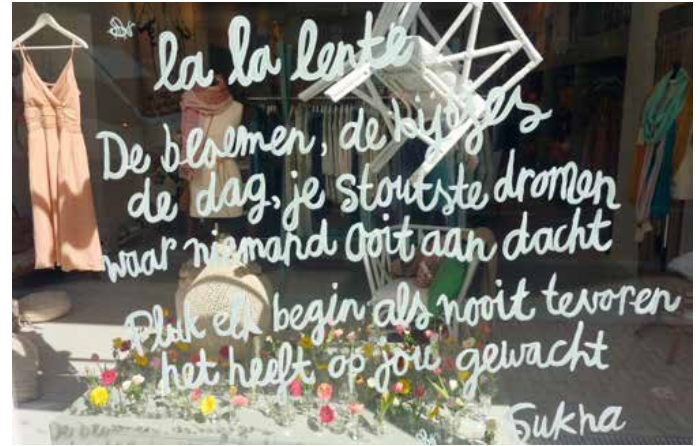 la la lente
De bloemen, de kijtjes
de dag, je stoutste dromen
waar niemand ooit aan dacht
Pluk elk begin als nooit tevoren
het heeft op jou gewacht
Sukha